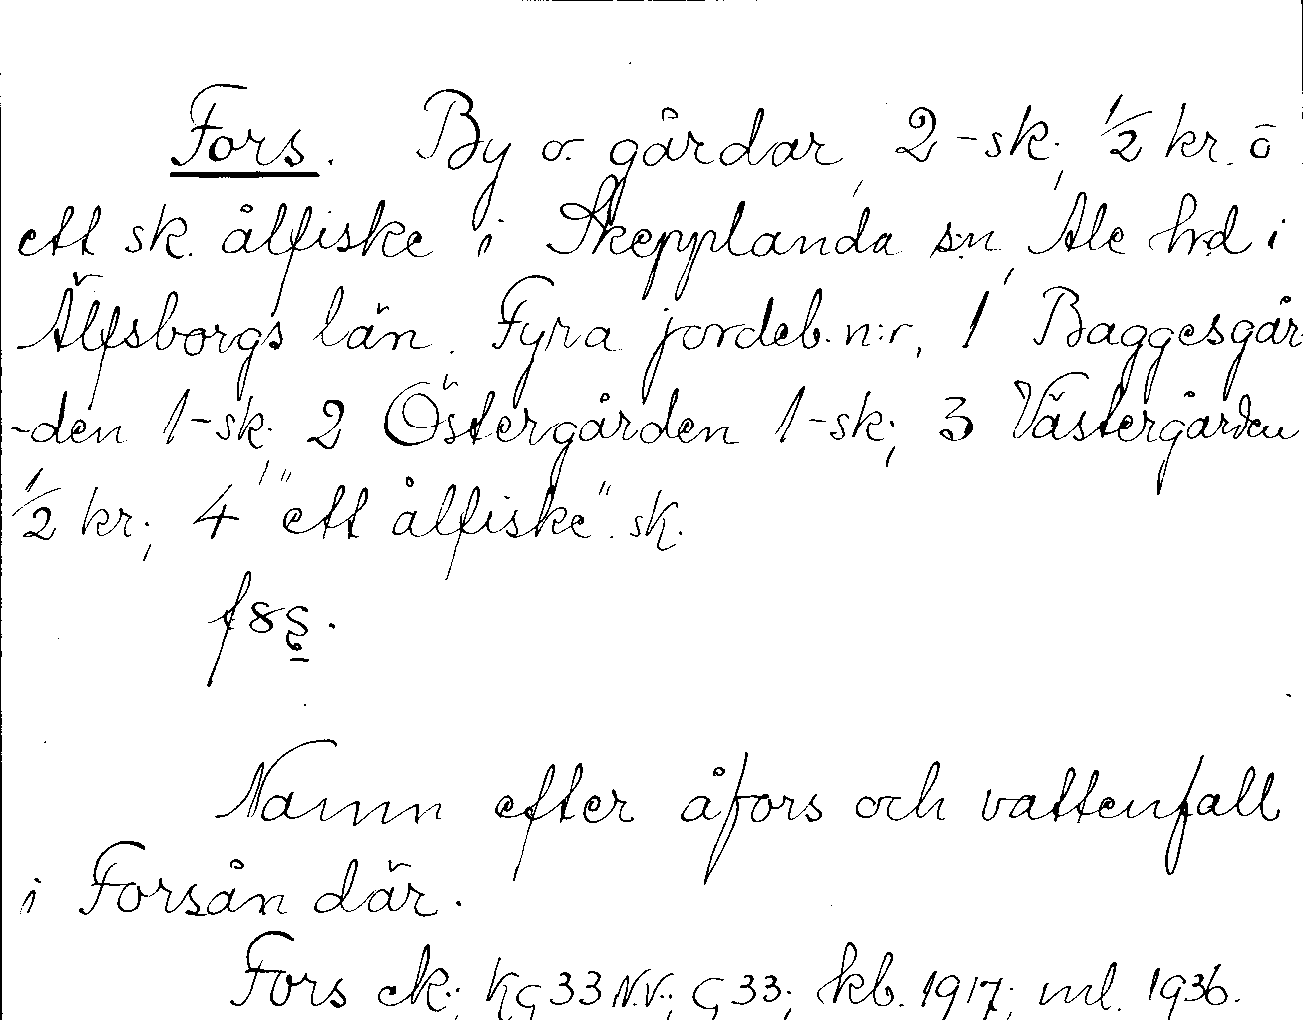 Fors. By o. gårdar, 2-sk; ½ kr. o.
ett sk. ålfiske i Skepplanda sn, Ale hd i
Älfsborgs län. Fyra jordeb.n:r, 1 Baggesgår
-den 1-sk; 2 Östergården 1-sk; 3 Västergården
½ kr; 4 "ett ålfiske". sk.
Namn efter åfors och vattenfall
i Forsån där.
Fors ek; KG 33 N.V.; G 33; kb. 1917; ml. 1936.